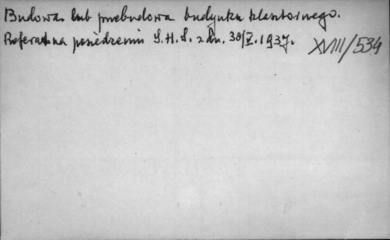 Budowa lub przebudowa budynku klasztornego.
Referat na posiedzeniu S.H.S. z dn. 30/V.1937.
XVIII/534